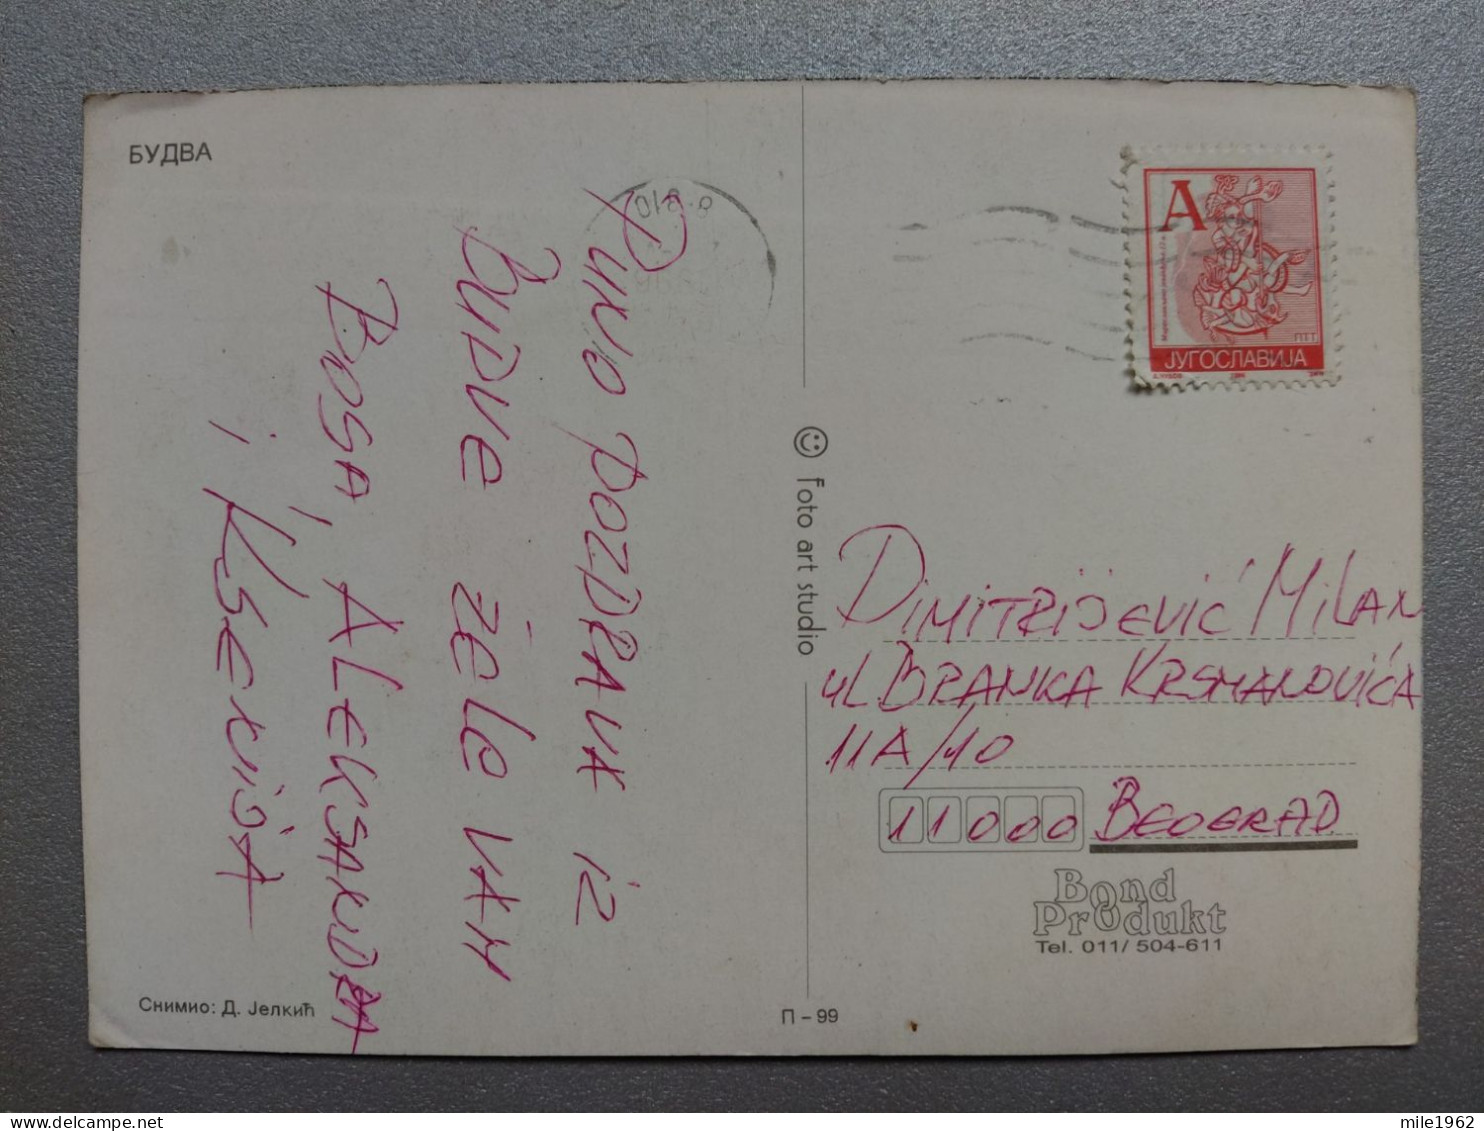 БУДВА
Puno pozdrava iz
Budve žele vam
Bosa, Aleksandra
i Ksenija
Снимио: Д. Јелкић
foto art studio
П – 99
A
ЈУГОСЛАВИЈА
Dimitrijević Milan
ul Branka Krsmanovića
11A/10
11000 Beograd
Bond
Produkt
Tel. 011/ 504-611
mile1962